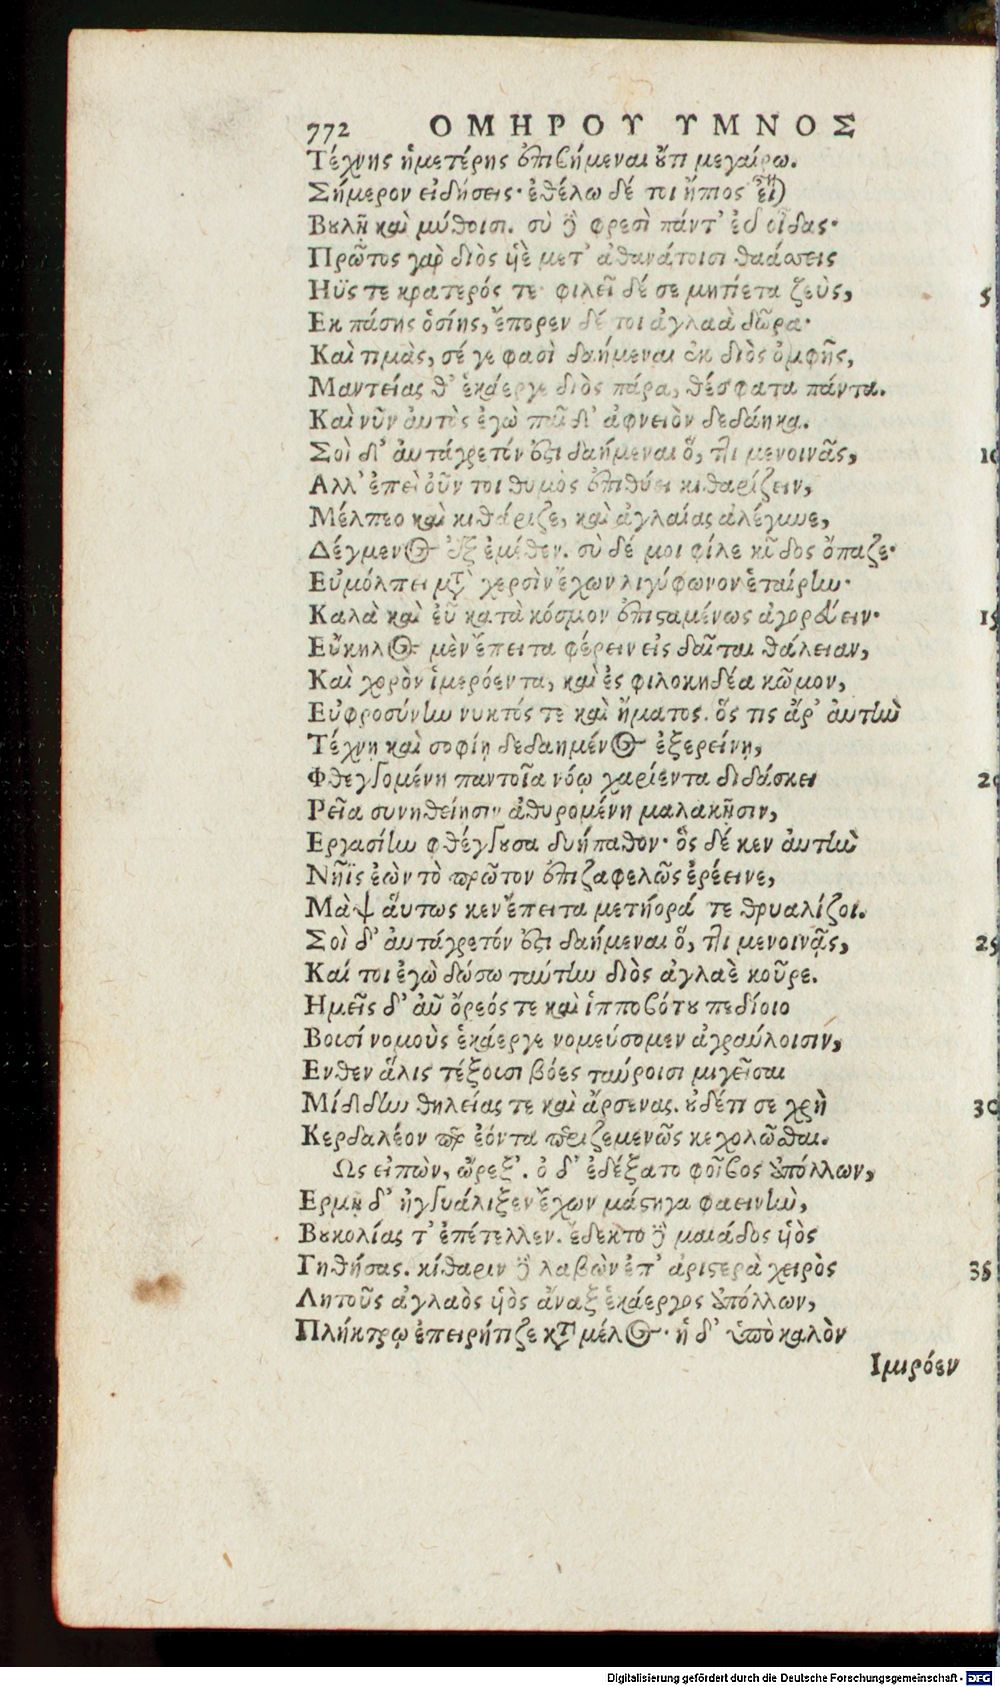 772 ΟΜΗΡΟΥ ΥΜΝΟΣ
Τέχνης ἡμετέρης ἐπιβήμεναι οὔτι μεγαίρω.
Σήμερον εἰδήσεις· ἐθέλω δέ τοι ἤπιος εἶναι
Βουλῇ καὶ μύθοισι. σὺ δὲ φρεσὶ πάντ' εὖ οἶδας·
Πρῶτος γὰρ διὸς υἱὲ μετ' ἀθανάτοισι θαάσσεις
Ηΰς τε κρατερός τε· φιλεῖ δέ σε μητίετα ζεὺς, 5
Εκ πάσης ὁσίης, ἔπορεν δέ τοι ἀγλαὰ δῶρα·
Καὶ τιμὰς, σέ γε φασὶ δαήμεναι ἐκ διὸς ὀμφῆς,
Μαντείας θ' ἑκάεργε διὸς πάρα, θέσφατα πάντα.
Καὶ νῦν αὐτὸς ἐγὼ παῖδ' ἀφνειὸν δεδάηκα.
Σοὶ δ' αὐτάγρετόν ἐστι δαήμεναι ὅ, ττι μενοινᾷς, 10
Αλλ' ἐπεὶ οὖν τοι θυμὸς ἐπιθύει κιθαρίζειν,
Μέλπεο καὶ κιθάριζε, καὶ ἀγλαίας ἀλέγυνε,
Δέγμενος ἐξ ἐμέθεν. σὺ δέ μοι φίλε κῦδος ὄπαζε·
Εὐμόλπει μετὰ χερσὶν ἔχων λιγύφωνον ἑταίρην·
Καλὰ καὶ εὖ κατὰ κόσμον ἐπισταμένως ἀγορεύειν· 15
Εὔκηλος μὲν ἔπειτα φέρειν εἰς δαῖτα θάλειαν,
Καὶ χορὸν ἱμερόεντα, καὶ ἐς φιλοκηδέα κῶμον,
Εὐφροσύνην νυκτός τε καὶ ἤματος. ὅς τις ἂρ' αὐτὴν
Τέχνῃ καὶ σοφίῃ δεδαημένος ἐξερείνῃ,
Φθεγγομένη παντοῖα νόῳ χαρίεντα διδάσκει 20
Ρεῖα συνηθείῃσιν ἀθυρομένη μαλακῇσιν,
Εργασίην φθέγγουσα δυήπαθον· ὃς δέ κεν αὐτὴν
Νῆϊς ἐὼν τὸ πρῶτον ἐπιζαφελῶς ἐρέεινε,
Μὰψ αὔτως κεν ἔπειτα μετήορά τε θρυαλίζοι.
Σοὶ δ' αὐτάγρετόν ἐστι δαήμεναι ὅ, ττι μενοινᾷς, 25
Καί τοι ἐγὼ δώσω ταύτην διὸς ἀγλαὲ κοῦρε.
Ημεῖς δ' αὖ ὄρεός τε καὶ ἱπποβότου πεδίοιο
Βουσί νομοὺς ἑκάεργε νομεύσομεν ἀγραύλοισιν,
Ενθεν ἅλις τέξουσι βόες ταύροισι μιγεῖσαι
Μίγδην θηλείας τε καὶ ἄρσενας. οὐδέτι σε χρὴ 30
Κερδαλέον περ ἐόντα περιζαμενῶς κεχολῶσθαι.
Ως εἰπὼν, ὤρεξ'. ὁ δ' ἐδέξατο φοῖβος ἀπόλλων,
Ερμῇ δ' ἠγγυάλιξεν ἔχων μάστιγα φαεινὴν,
Βουκολίας τ' ἐπέτελλεν. ἔδεκτο δὲ μαιάδος υἱὸς
Γηθήσας. κίθαριν δὲ λαβὼν ἐπ' ἀριστερὰ χειρὸς 35
Λητοῦς ἀγλαὸς υἱὸς ἄναξ ἑκάεργος ἀπόλλων,
Πλήκτρῳ ἐπειρήτιζε κατὰ μέλος· ἡ δ' ὑπὸ καλὸν
Ιμερόεν
Digitalisierung gefördert durch die Deutsche Forschungsgemeinschaft - DFG